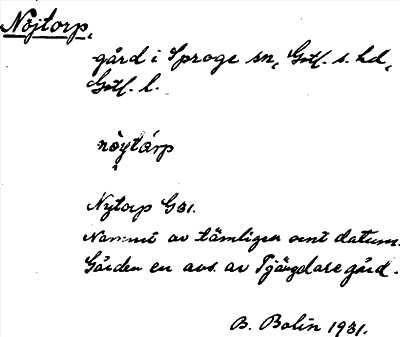 Nöjtorp,
gård i Sproge sn, Gotl. s. hd,
Gotl. l.
nöytárp
Nytorp G31.
Namnet av tämligen sent datum.
Gården en avs. av Tjängdare gård.
B. Bolin 1931.